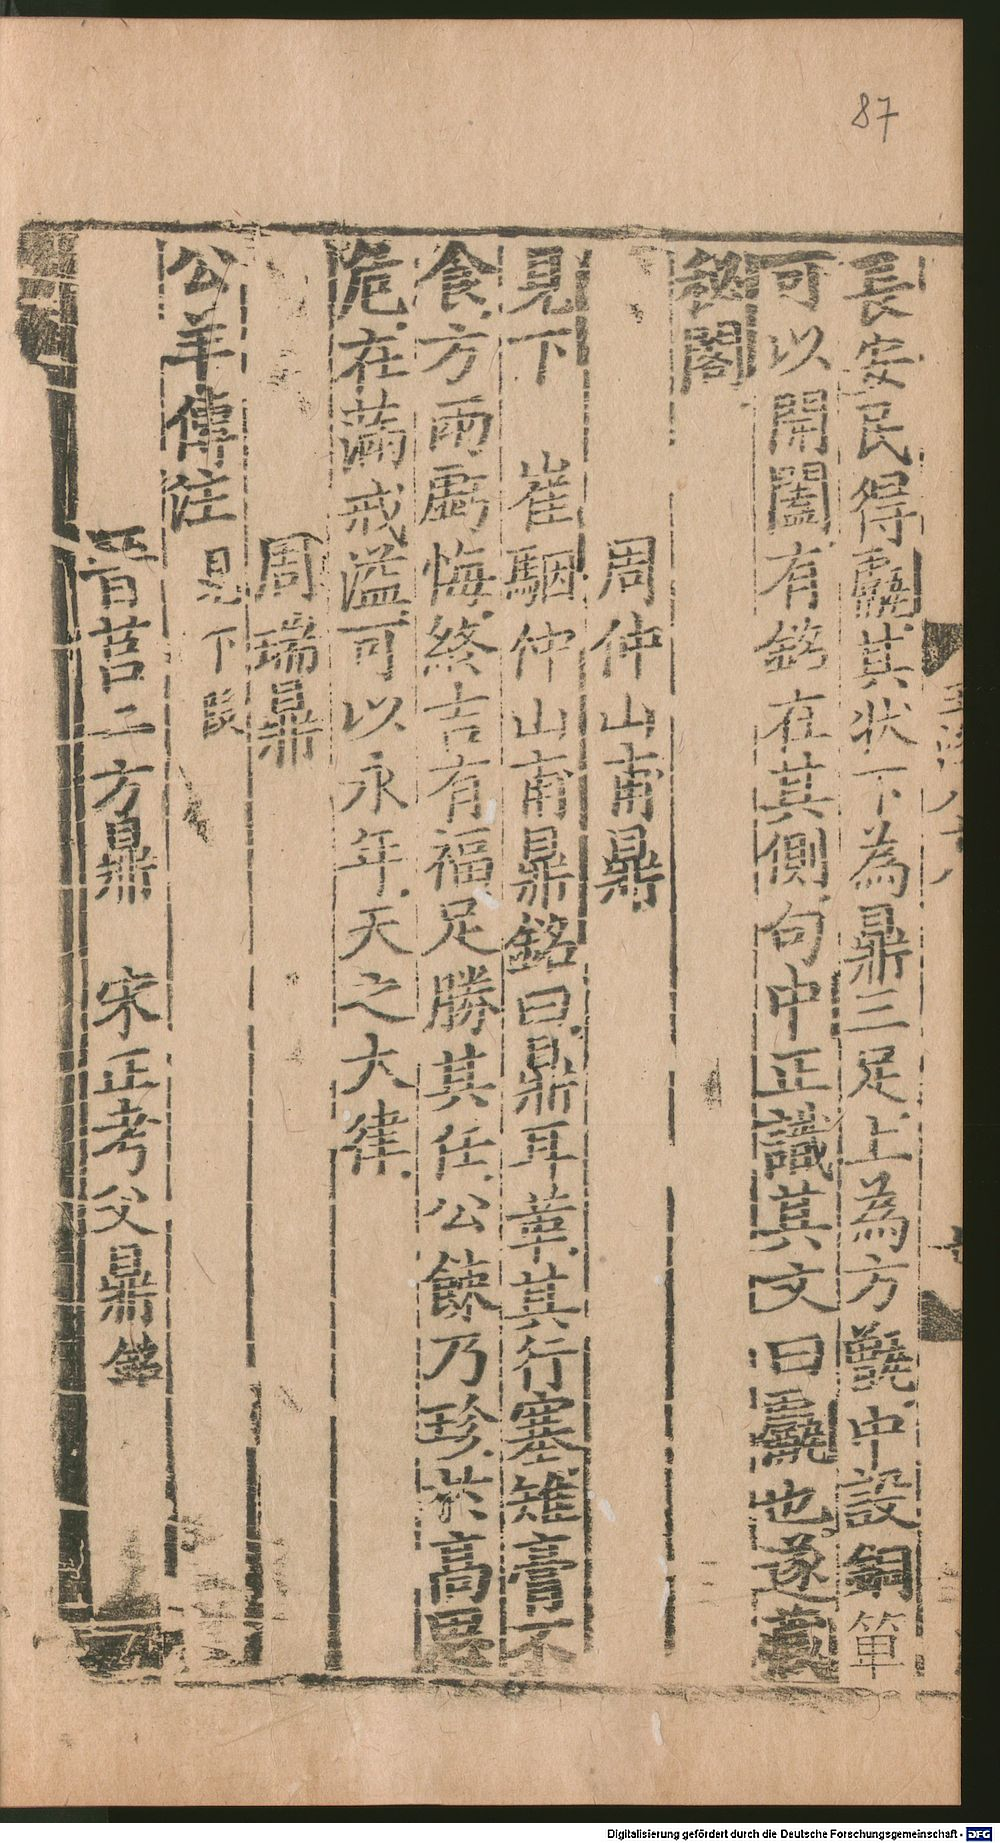 87
長安民得甗其狀下為鼎三足上為方甑中設銅箄
可以開闔有銘在其側句中正識其文曰甗也遂藏
秘閣
周仲山甫鼎
見下 崔駰仲山甫鼎銘曰鼎耳革其行塞雉膏不
食方雨虧悔終吉有福足勝其任公餗乃珍於高思
危在滿戒溢可以永年天之大律
周瑞鼎
公羊傳注 見下段
晉莒二方鼎 宋正考父鼎銘
Digitalisierung gefördert durch die Deutsche Forschungsgemeinschaft - DFG